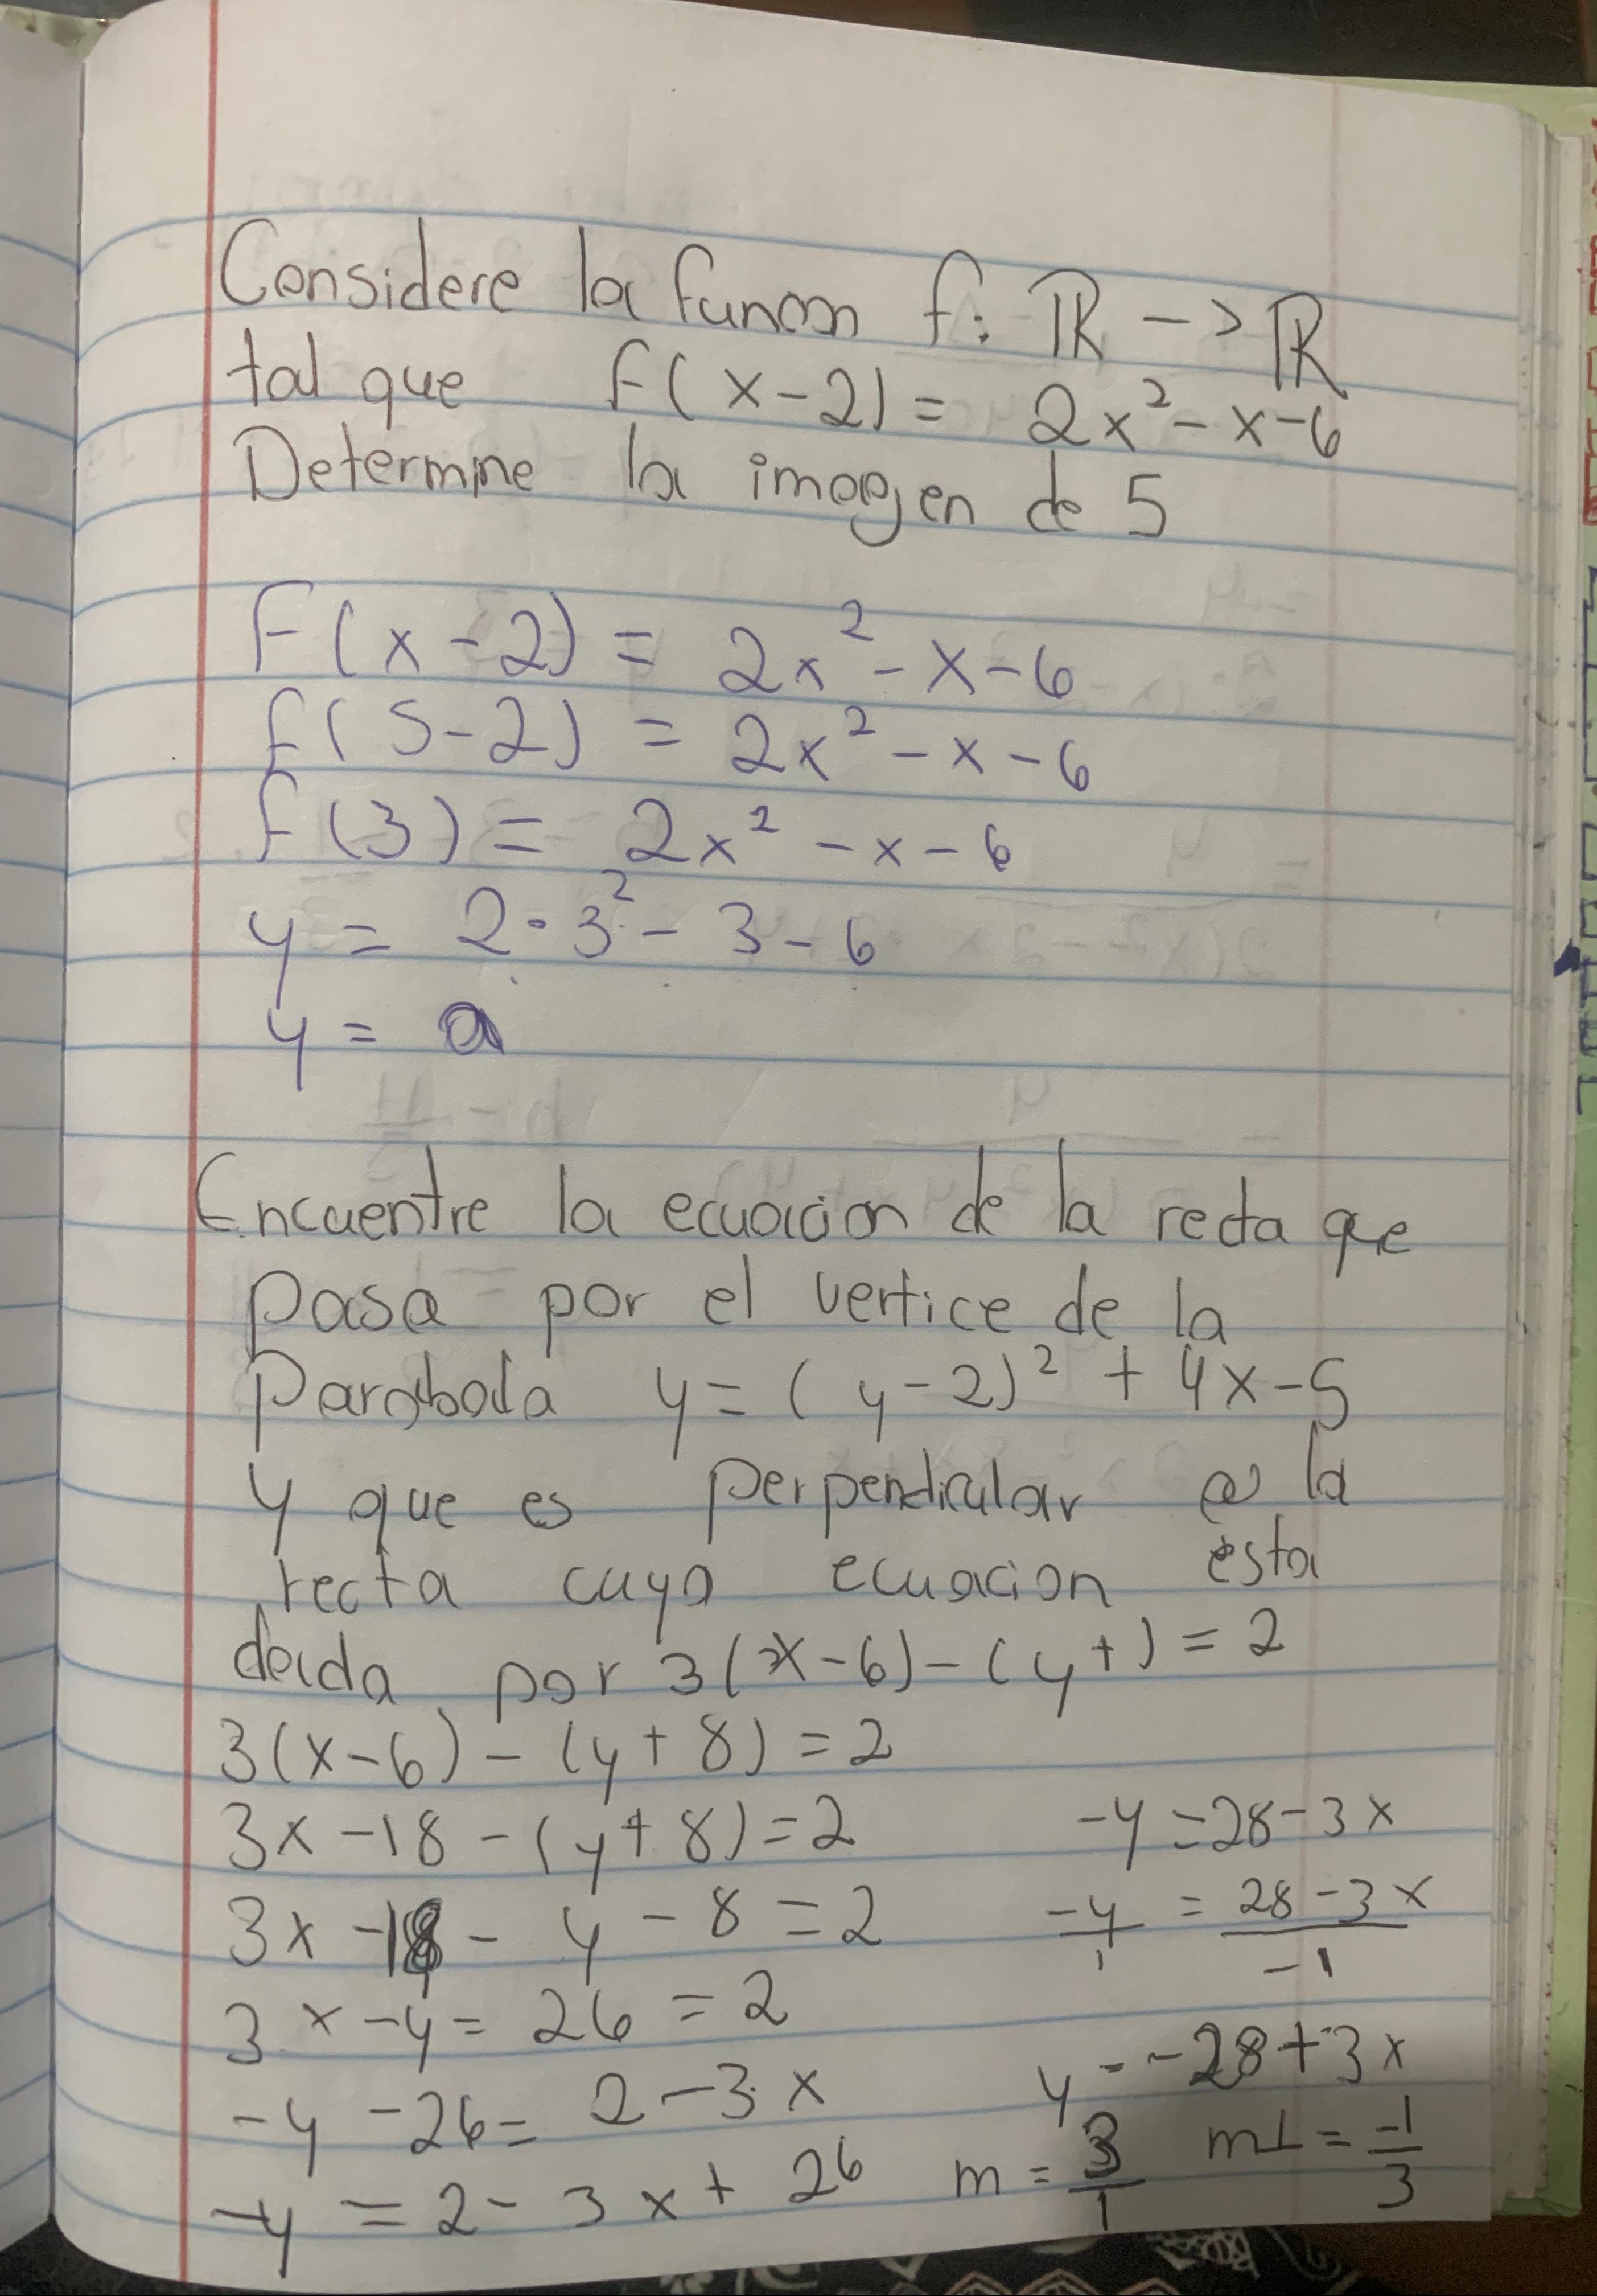 Considere la funcion f: ℝ -> ℝ
tal que f(x-2) = 2x² - x-6
Determine la imagen de 5
F(x-2) = 2x² - x-6
f(5-2) = 2x² - x - 6
f(3) = 2x² - x - 6
y = 2·3² - 3 - 6
y =
Encuentre la ecuacion de la recta que
pasa por el vertice de la
parabola y = (y-2)² + 4x-5
y que es perpendicular a la
recta cuya ecuacion esta
dada por 3(x-6)-(y+) = 2
3(x-6) - (y+8) = 2
3x -18 - (y+8) = 2
3x -18 - y - 8 = 2
3x -y = 26 = 2
-y -26 = 2-3x
-y = 2 - 3x + 26
-y = 28-3x
-y/1 = 28-3x/-1
y = -28+3x
m = 3/1 m⊥ = -1/3